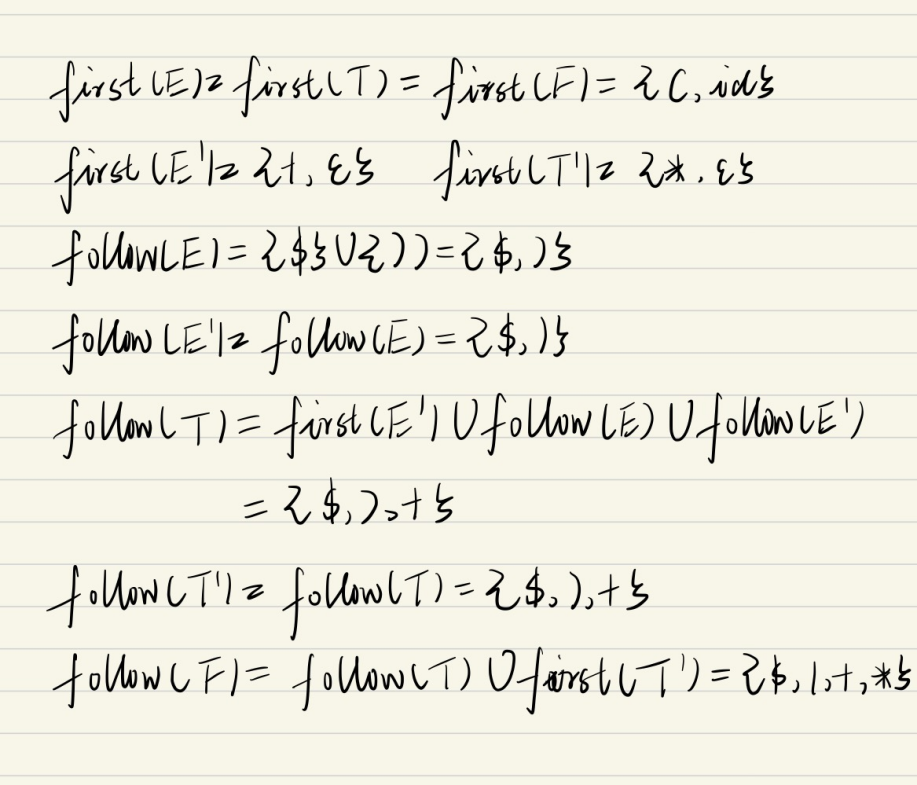 first(E)= first(T) = first(F)= {(, id}
first(E')= {+, ε} first(T')= {*, ε}
follow(E)= {$}∪{)}={$, )}
follow(E')= follow(E)={$, )}
follow(T)= first(E')∪follow(E)∪follow(E')
={$, ), +}
follow(T')= follow(T)={$, ), +}
follow(F)= follow(T)∪first(T')={$, ), +, *}